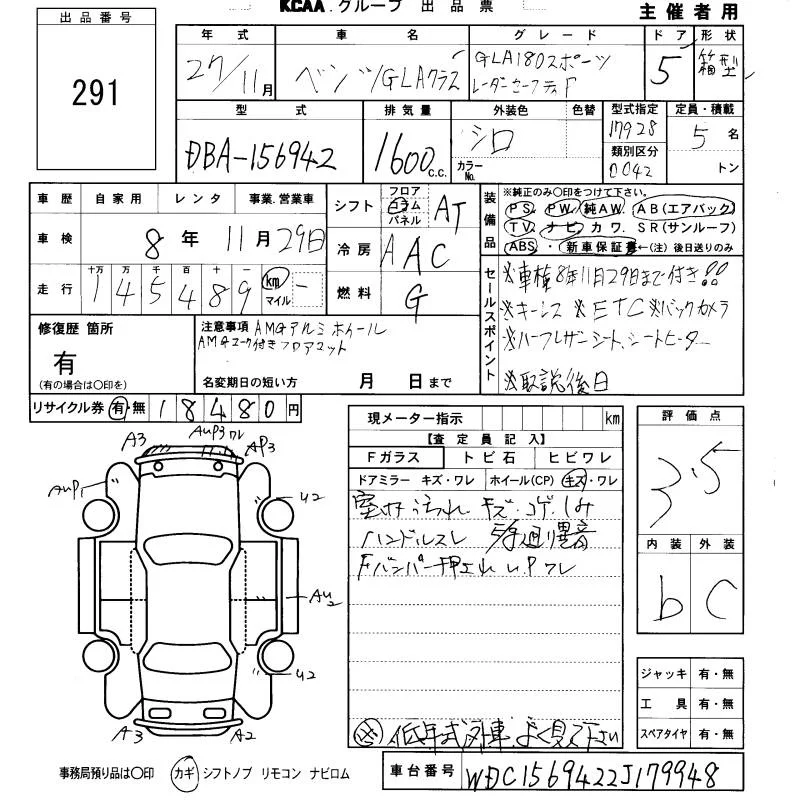 KCAA.グループ 出品票
主催者用
出品番号
291
年式 車名 グレード ドア 形状
27/11月 ベンツGLAクラス GLA180スポーツ 5 箱型
レーダーセーフティF
型式 排気量 外装色 色替 型式指定 定員・積載
DBA-156942 1600c.c. シロ 17928 5名
カラーNo. 類別区分
0042 トン
車歴 自家用 レンタ 事業.営業車
車検 8年11月29日
走行 十万 万 千 百 十 一
145489 km
マイル
シフト フロア コラム パネル AT
冷房 AAC
燃料 G
装備品
※純正のみ○印をつけて下さい。
PS. PW. 純AW. AB(エアバック)
TV. ナビ カワ. SR(サンルーフ)
ABS・新車保証書←(注)後日送りのみ
セールスポイント
※車検8年11月29日まで付き!!
※キーレス ※ETC ※バックカメラ
※ハーフレザーシート、シートヒーター
※取説後日
修復歴 箇所
有
(有の場合は○印を)
注意事項 AMGアルミホイール
AMGマーク付きフロアマット
名変期日の短い方 月 日まで
リサイクル券 有・無 18480円
現メーター指示 km
【査定員記入】
Fガラス トビ石 ヒビワレ
ドアミラー キズ・ワレ ホイール(CP) キズ・ワレ
室内汚れ キズ・コゲ・しみ
ハンドルスレ 異音
Fバンパー押され U.P ワレ
低年式外車.よく見て下さい
評価点
3.5
内装 外装
b C
ジャッキ 有・無
工具 有・無
スペアタイヤ 有・無
A3 AUP3 ワレ AP3
AUP1 U2
AU2
U2
A3 A2
事務局預り品は○印 カギ シフトノブ リモコン ナビロム
車台番号 WDC1569422J179948